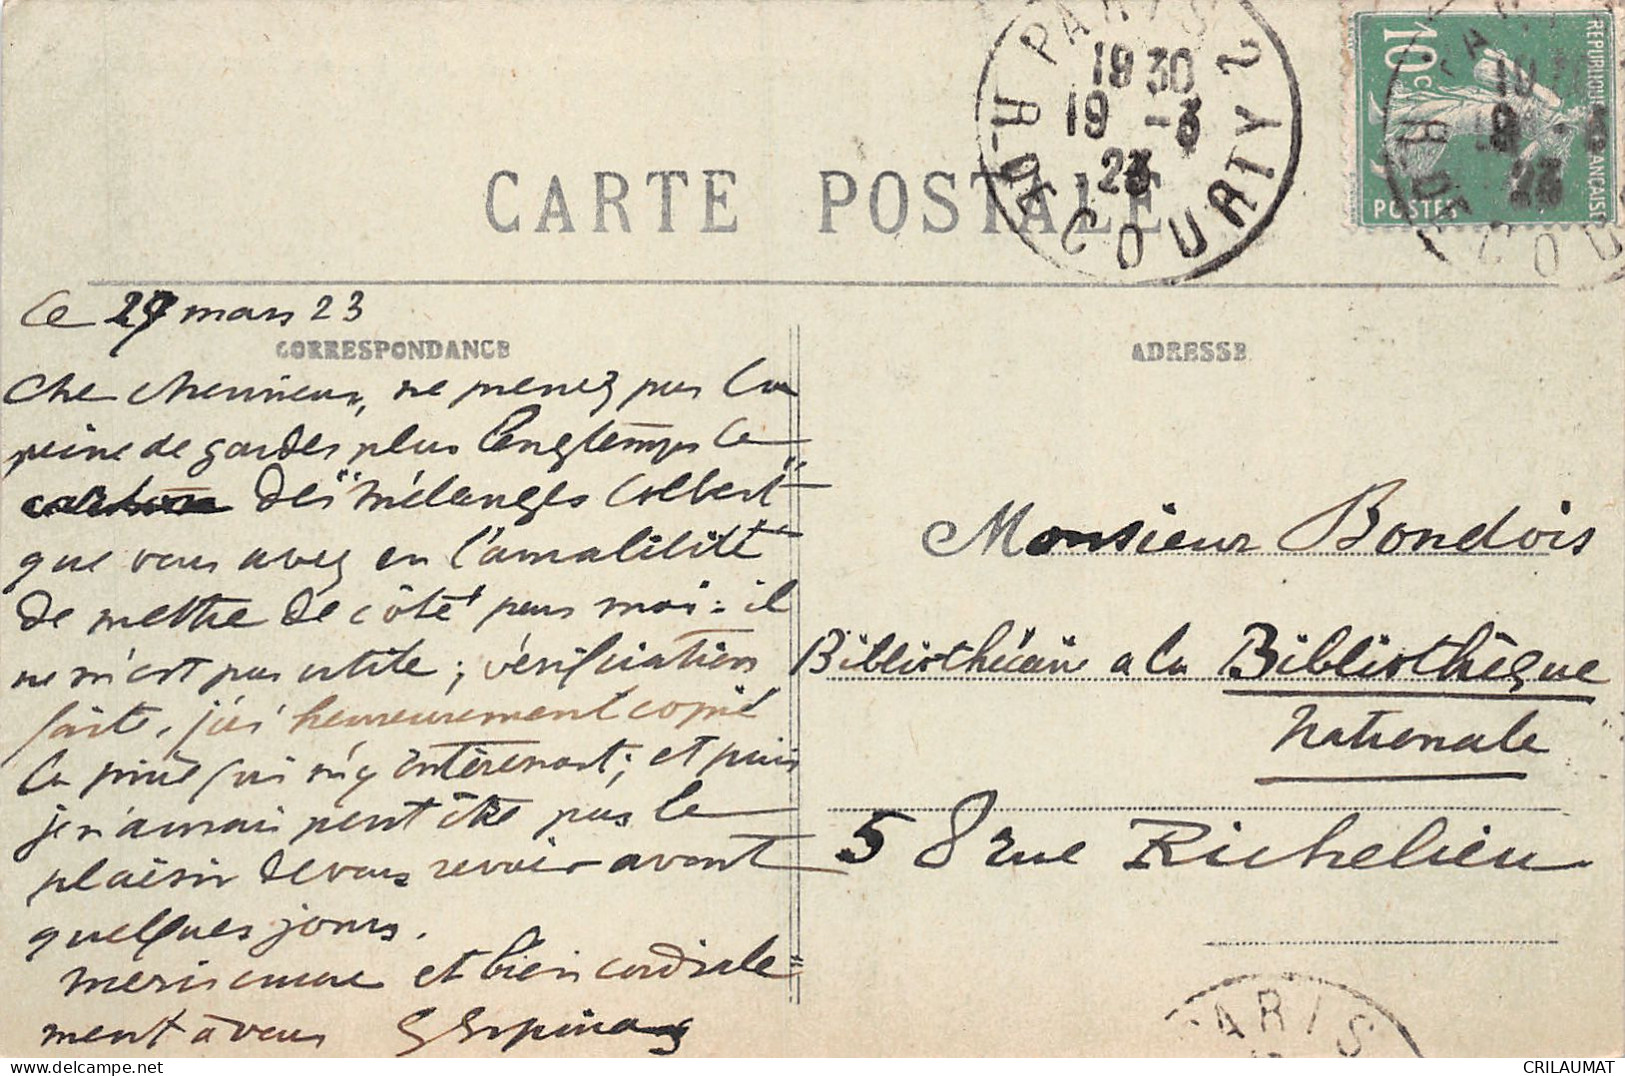 CARTE POSTALE
PARIS
19 30
19 -3
23
R. DE COURTY 2
10c
REPUBLIQUE FRANÇAISE
POSTES
Ce mars 23
CORRESPONDANCE
ADRESSE
Cher Monsieur, ne prenez pas la
peine de garder plus longtemps le
des "Mélanges Colbert"
que vous avez eu l'amabilité
de mettre de côté pour moi : il
ne m'est pas utile ; vérification
faite, j'ai heureusement copié
la pièce qui m'y intéressait ; et puis
je n'aurai peut être pas le
plaisir de vous revoir avant
quelques jours.
Merci encore et bien cordiale
ment à vous G Espinas
Monsieur Bondois
Bibliothécaire a la Bibliothèque
Nationale
58 rue Richelieu
PARIS
CRILAUMAT